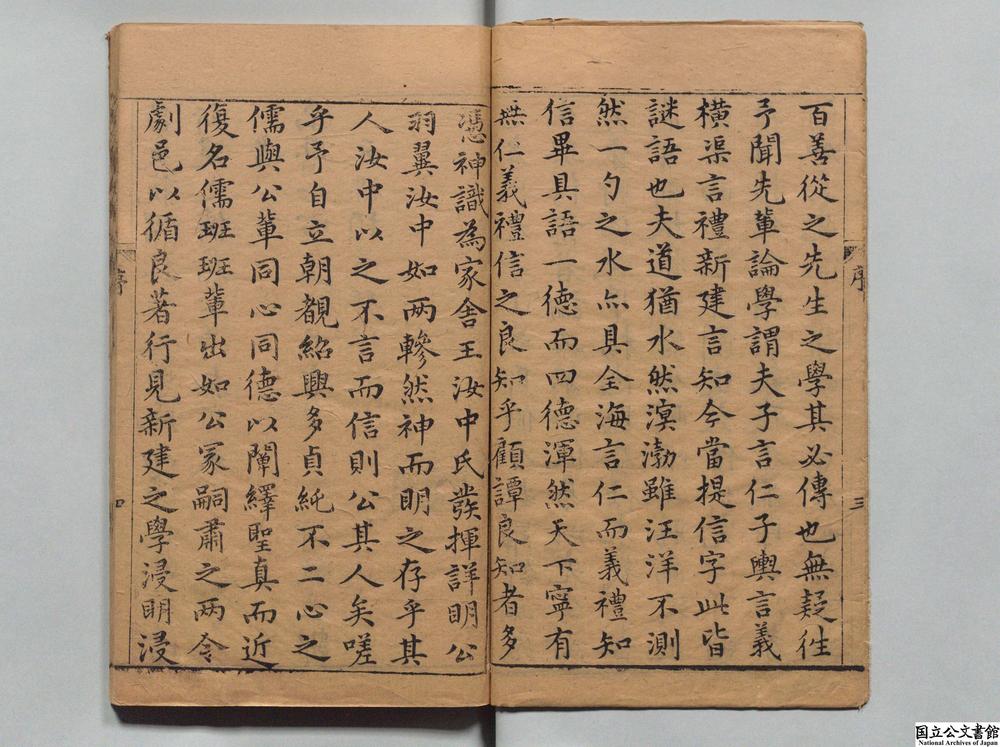 百善從之先生之學其必傳也無疑徃
予聞先軰論學謂夫子言仁子輿言義
橫渠言禮新建言知今當提信字此皆
謎語也夫道猶水然溟渤雖汪洋不測
然一勺之水亦具全海言仁而義禮知
信畢具語一德而四德渾然天下寧有
無仁義禮信之良知乎顧譚良知者多
序
三
憑神識為家舍王汝中氏發揮詳明公
羽翼汝中如两轡然神而明之存乎其
人汝中以之不言而信則公其人矣嗟
乎予自立朝覩紹興多貞純不二心之
儒與公軰同心同德以闡繹聖真而近
復名儒班班軰出如公冢嗣肅之两令
劇邑以循良著行見新建之學浸明浸
序
四
国立公文書館
National Archives of Japan